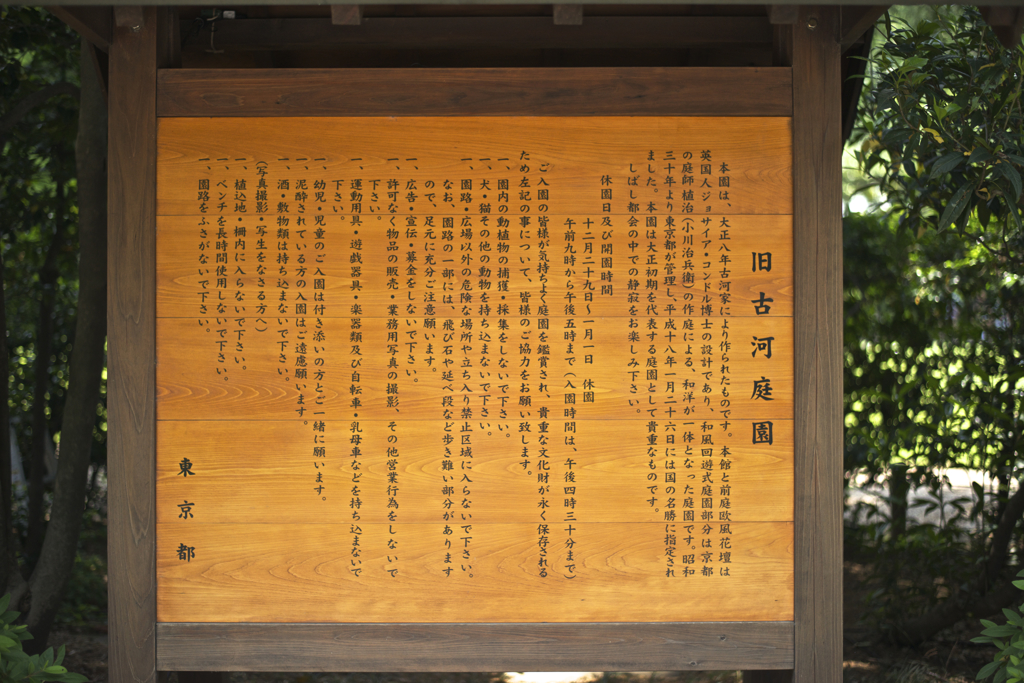 旧古河庭園
本園は、大正八年古河家により作られたものです。本館と前庭欧風花壇は
英国人ジョサイア・コンドル博士の設計であり、和風回遊式庭園部分は京都
の庭師植治(小川治兵衛)の作庭による、和洋が一体となった庭園です。昭和
三十年より東京都が管理し、平成十八年一月二十六日には国の名勝に指定され
ました。本園は大正初期を代表する庭園として貴重なものです。
しばし都会の中での静寂をお楽しみ下さい。
休園日及び開園時間
十二月二十九日~一月一日 休園
午前九時から午後五時まで(入園時間は、午後四時三十分まで)
ご入園の皆様が気持ちよく庭園を鑑賞され、貴重な文化財が永く保存される
ため左記の事について、皆様のご協力をお願い致します。
一、園内の動植物の捕獲・採集をしないで下さい。
一、犬・猫その他の動物を持ち込まないで下さい。
一、園路・広場以外の危険な場所や立ち入り禁止区域に入らないで下さい。
なお、園路の一部には、飛び石や延べ段など歩き難い部分があります
ので、足元に充分ご注意願います。
一、広告・宣伝・募金をしないで下さい。
一、許可なく物品の販売・業務用写真の撮影、その他営業行為をしないで
下さい。
一、運動用具・遊戯器具・楽器類及び自転車・乳母車などを持ち込まないで
下さい。
一、幼児・児童のご入園は付き添いの方とご一緒に願います。
一、泥酔されている方の入園はご遠慮願います。
一、酒・敷物類は持ち込まないで下さい。
(写真撮影・写生をなさる方へ)
一、植込地・柵内に入らないで下さい。
一、ベンチを長時間使用しないで下さい。
一、園路をふさがないで下さい。
東京都